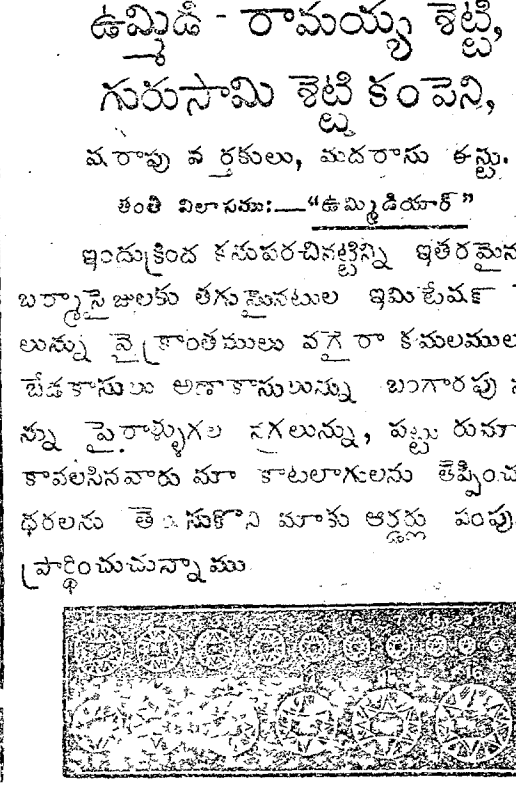 ఉమ్మిడి - రామయ్య శెట్టి,
గురుసామి శెట్టి కంపెని,
షరాపు వర్తకులు, మదరాసు ఈస్టు.
తంతి విలాసము:—“ఉమ్మిడియార్”
ఇందుక్రింద కనుపరచినట్టిన్ని ఇతరమైన
బర్మాసైజులకు తగు నటుల ఇమిటేషన్
లున్ను వైక్రాంతములు వగైరా కమలముల
బేడకాసులు అణాకాసులున్ను బంగారపు
న్ను పైరాళ్ళుగల నగలున్ను, పట్టు రుమా
కావలసినవారు మా కాటలాగులను తెప్పించ
ధరలను తెలుసుకొని మాకు ఆర్డర్లు పంపు
ప్రార్థించుచున్నాము